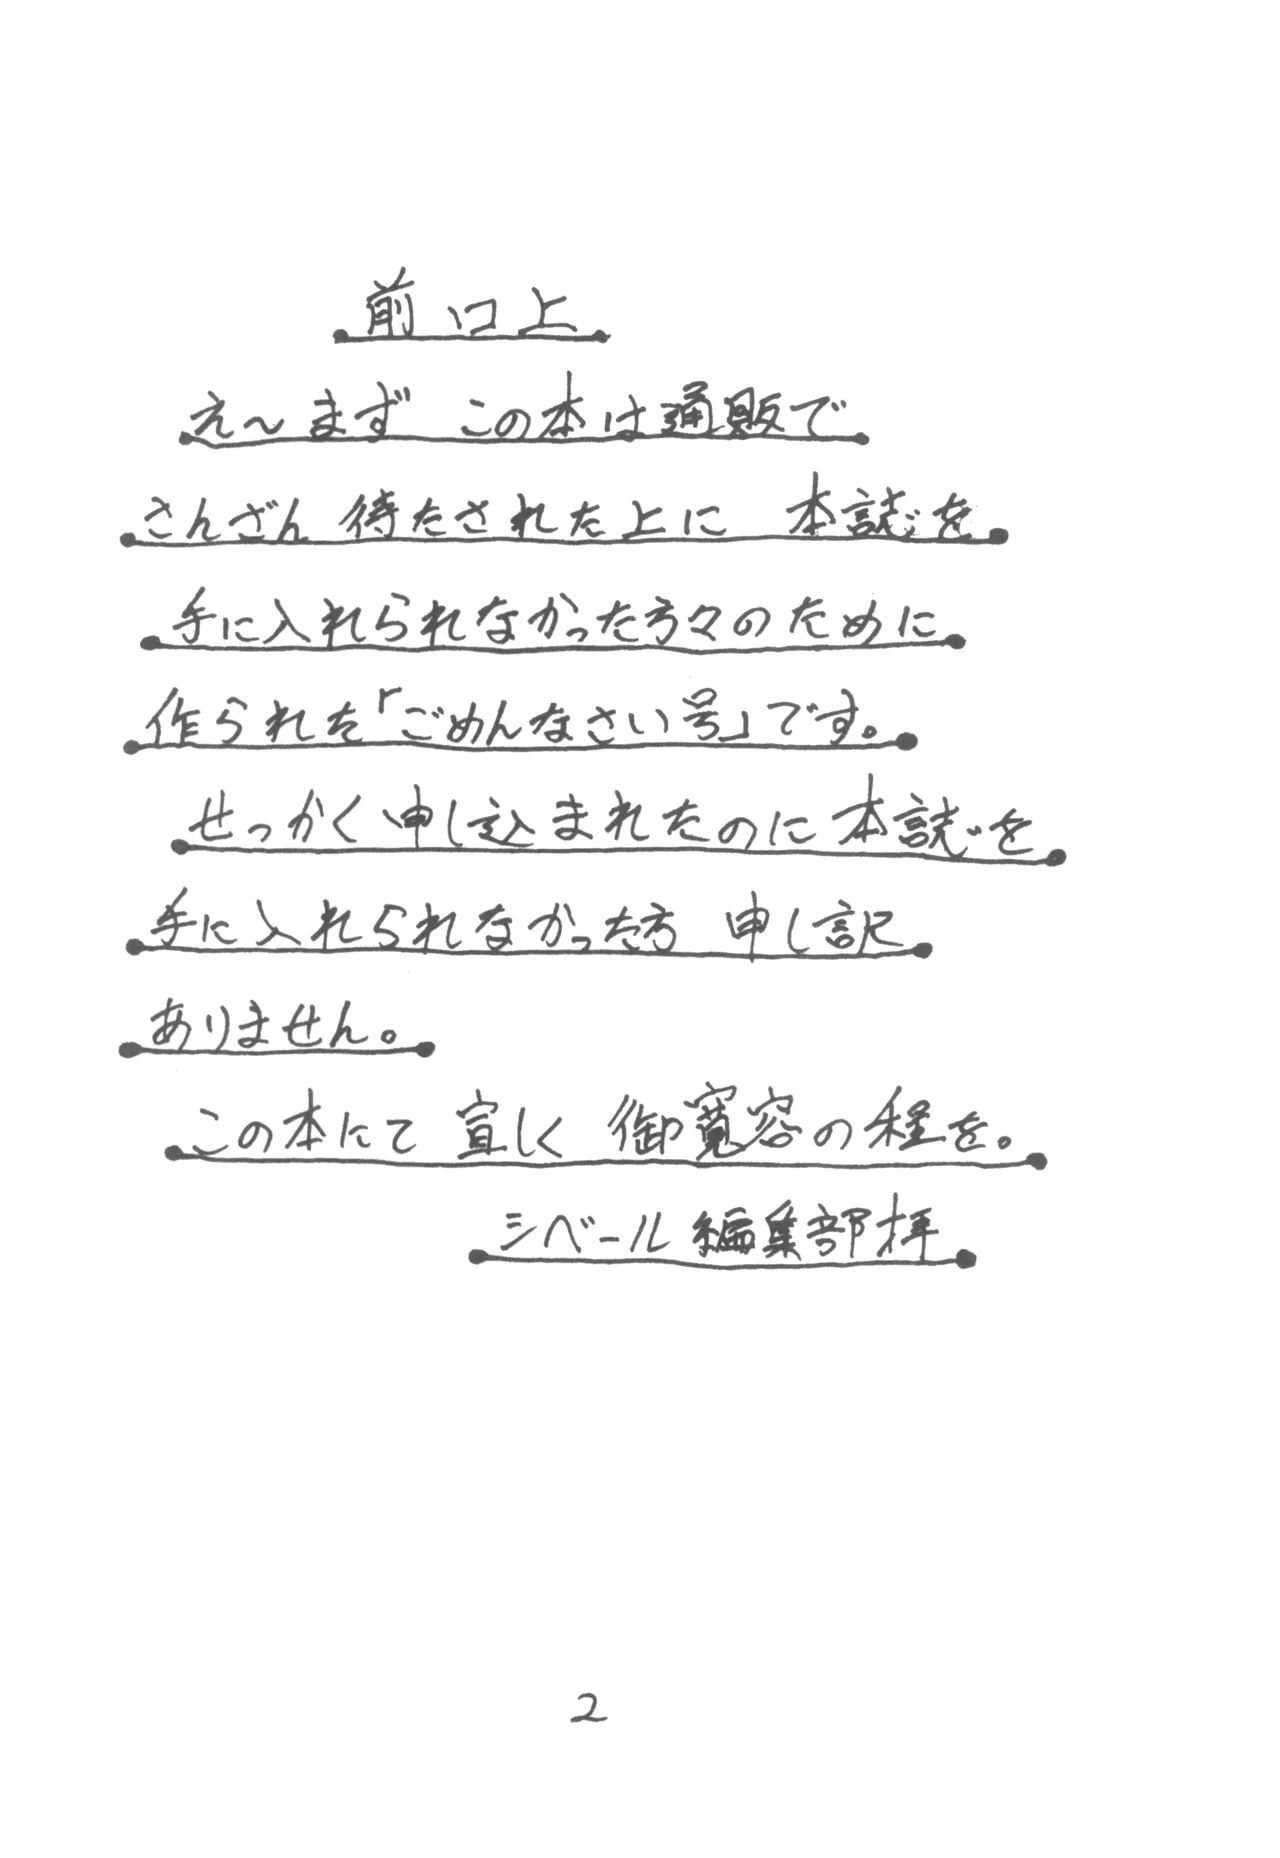 前口上
え〜まず この本は通販で
さんざん待たされた上に 本誌を
手に入れられなかった方々のために
作られた「ごめんなさい号」です。
せっかく申し込まれたのに本誌を
手に入れられなかった方 申し訳
ありません。
この本にて 宜しく 御寛容の程を。
シベール編集部拝
2